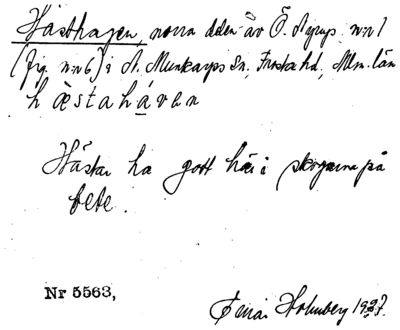 Hästhagen, norra delen av Ö. Nyrup n:r 1
(fig. n:r 6) i N. Munkarps Sn, Frosta hd, Mlm. län
hästaháven
Hästar ha gott här i skogarna på
bete.
Nr 5563,
Holmberg 1927.